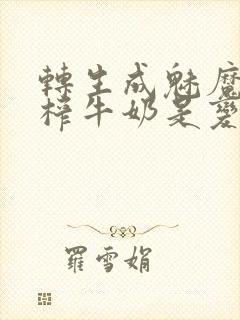 轉生成魅魔
榨牛奶是變
羅雪娟